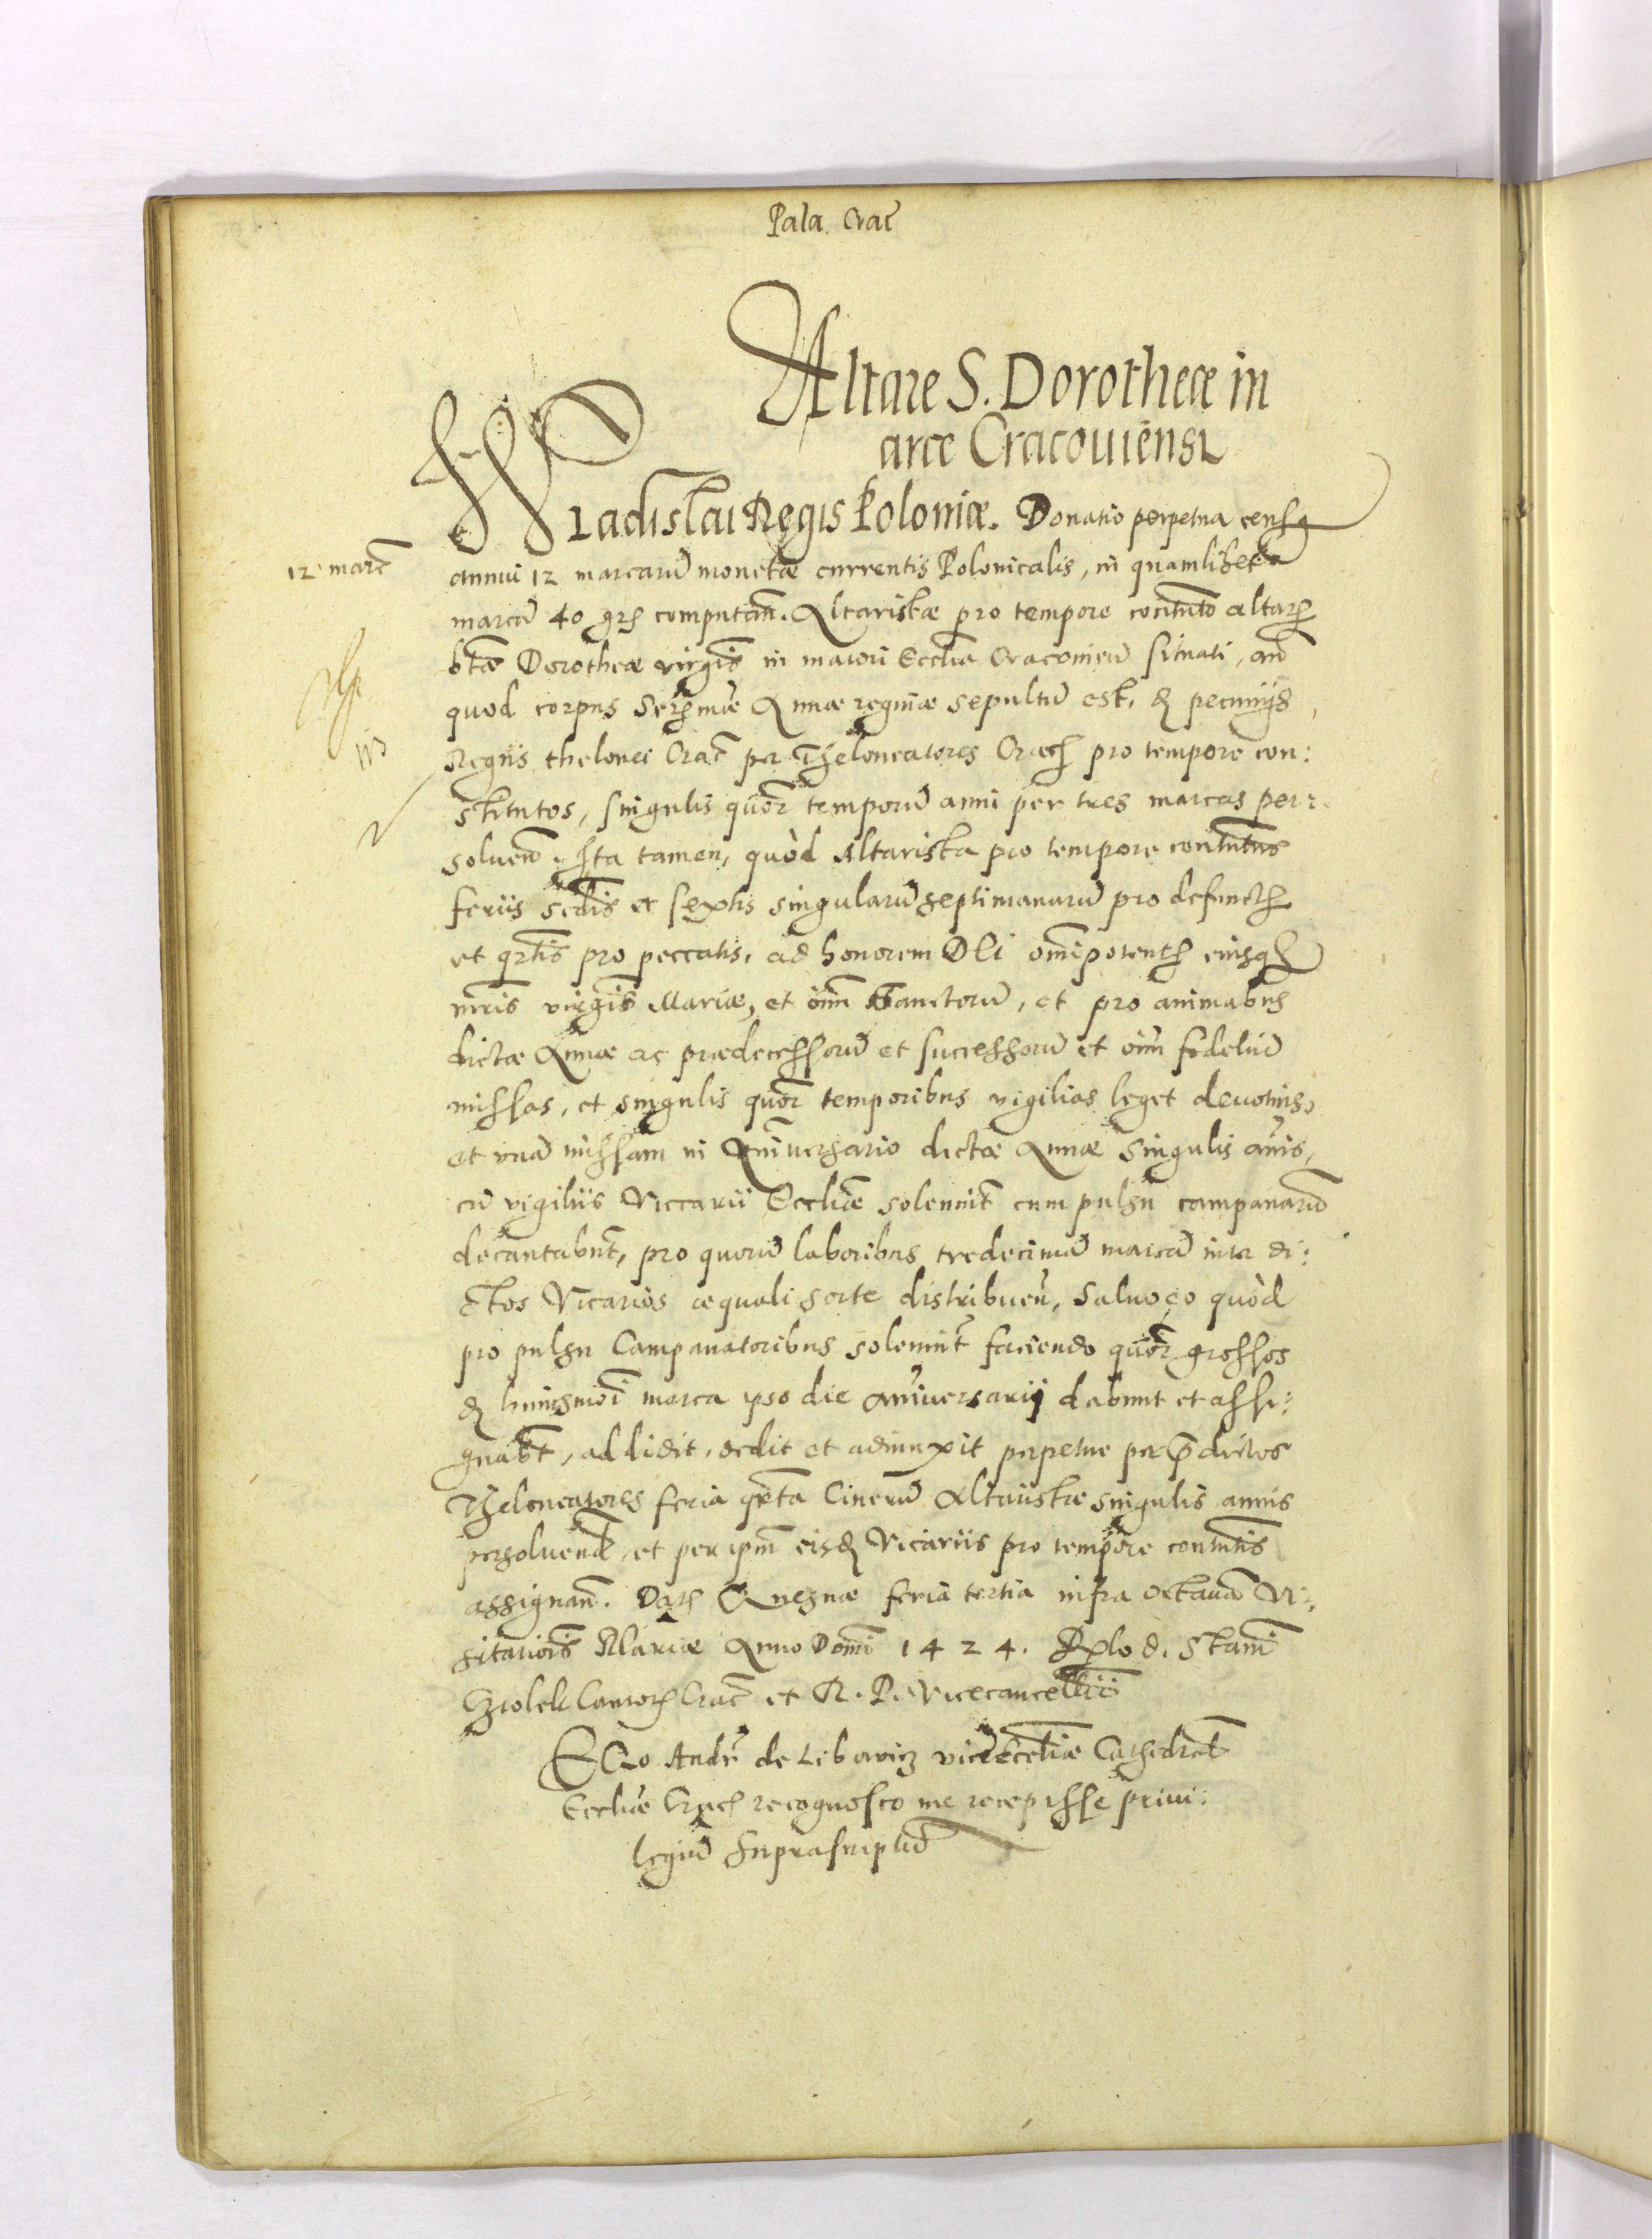 Pala. Crac̃
Altare S. Dorotheæ in
arce Cracouiēnsi
Wladislai Regis Poloniæ. Donatio perpetua census
12 marc̃
annui 12 marcarũ monetæ currentis Polonicalis, in quamlibet
marcã 40 grs computañ. Altaristæ pro tempore contituto altaris
btæ Dorotheæ virgĩs in maiori Ecclia Cracouieñ situati, añ
quod corpus Serſmæ Annæ reginæ sepultũ est, ex pecuniis
Regiis thelonei Crac̃ per Theloneatores Crac̃ pro tempore con:
stitutos, singulis quõr temporũ anni per tres marcas per:
soluend̃. Ita tamen, quòd Altarista pro tempore contitutus
feriis sedĩs et sextis singularũ septimanarũ pro defunctis
et qrtis pro peccatis, ad honorem Dei omĩpotentis eiusq
mr̃is virgĩs Mariæ, et oĩm Sanctorũ, et pro animabus
dictæ Annæ ac prædecessorũ et successorũ et oĩm fideliũ
missas, et singulis quõr temporibus vigilias leget deuotius,
et vnã missam in Anĩuersario dictæ Annæ singulis anĩs,
cũ vigiliis Viccarii Eccliæ solennit̃ cum pulsu campanarũ
decantabunt, pro quorũ laboribus tredecimã marcã inter di:
ctos Vicarios æquali sorte distribueñ, Saluo eo quòd
pro pulsu Campanatoribus solennit̃ faciendo quõr grossos
ex huiusmõi marca ipso die anĩuersarij dabunt et assi:
gnabt̃, addidit, dedit et adiunxit perpetue per p̃dictos
Theloneatores feria qrta Cinerũ Altaristæ singulis annis
persoluend̃, et per ipm̃ eisdẽ Vicariis pro tempore contitutis
assignañ. Dat̃ feria tertia infra octauã Vi:
sitatiõis Mariæ Anno Domĩ 1424. Rlo d. Stanĩ
Cziolek Cantoris Crac̃ et R. P. Vicecancellĩi
EGo Andr̃ de Libowicz Cathedral̃
Eccliæ Crac̃ recognosco me recepisse priui:
legiũ suprascriptũ